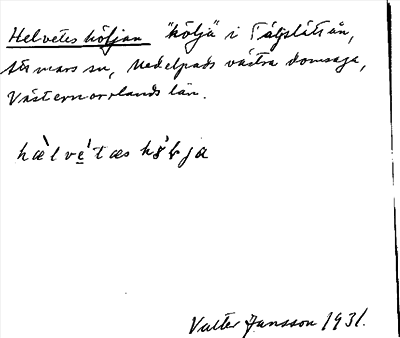 Helveteshöljan "hölja" i Täljslättån,
Stömars sn, Medelpads västra domsaga,
Västernorrlands län.
hæ̀lvétæs hɞ̀ɽja
Valter Jansson 1931.